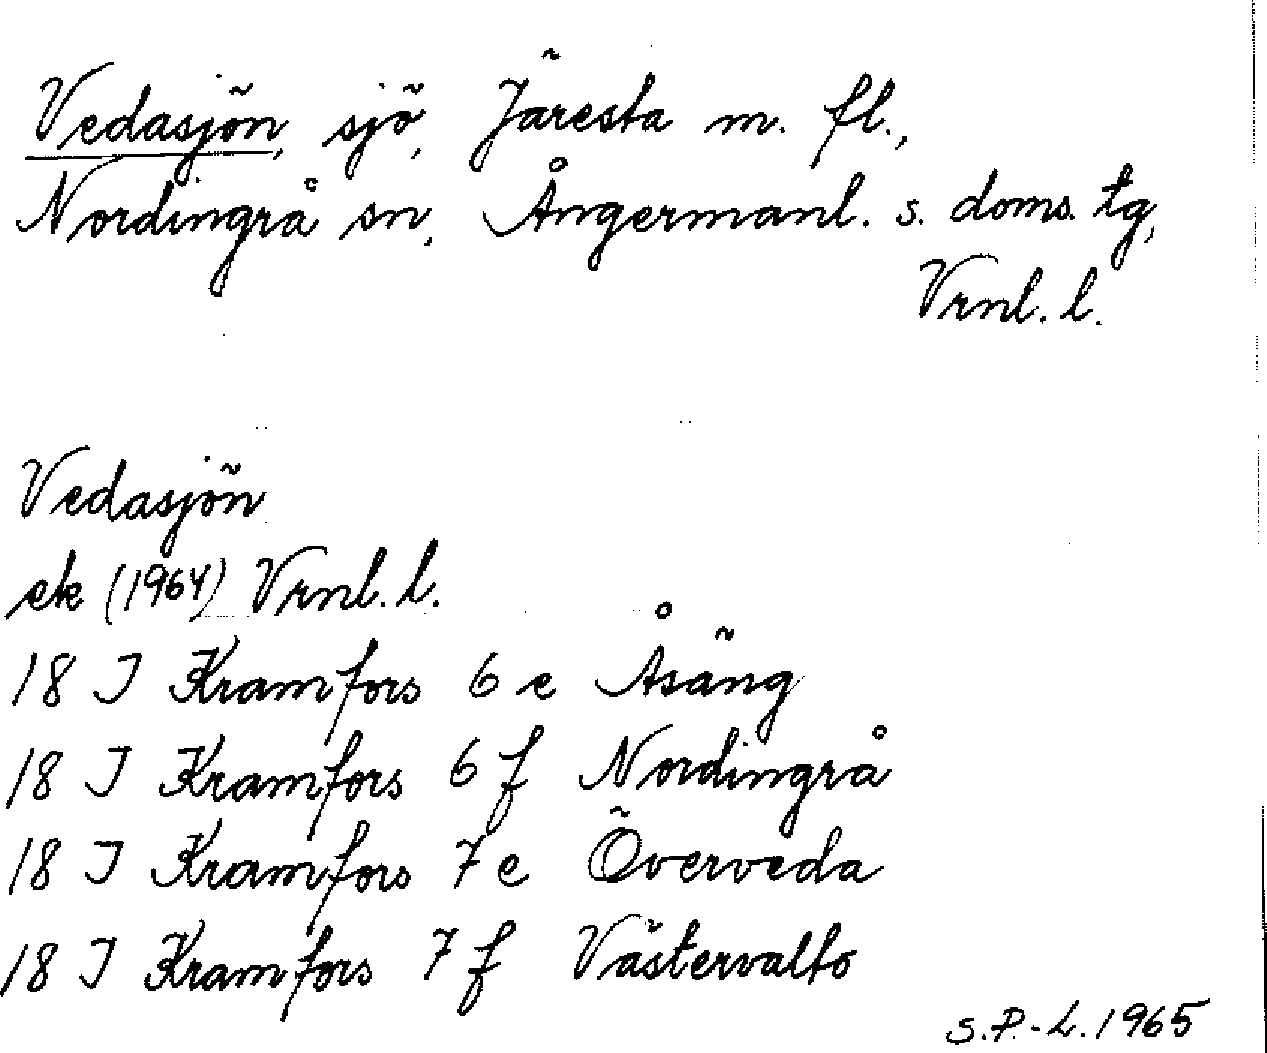 Vedasjön, sjö, Järesta m. fl.,
Nordingrå sn, Ångermanl. s. doms. tg,
Vrnl. l.
Vedasjön
ek (1964) Vrnl. l.
18 I Kramfors 6 e Åsäng
18 I Kramfors 6 f Nordingrå
18 I Kramfors 7 e Överveda
18 I Kramfors 7 f Västervalto
S.P.-L. 1965